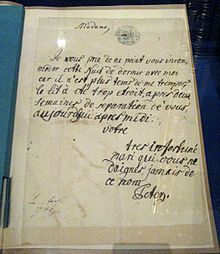 Madame,
je vous prie de ne point vous incom-
moder cette nuit de dormir avec moi
car il n'est plus tems de me tromper
le lit a été trop étroit, après deux
semaines de separation de vous
aujourd'hui apres midi.
votre
tres infortuné
mari qui vous ne
daignez jamais de
ce nom
Peter